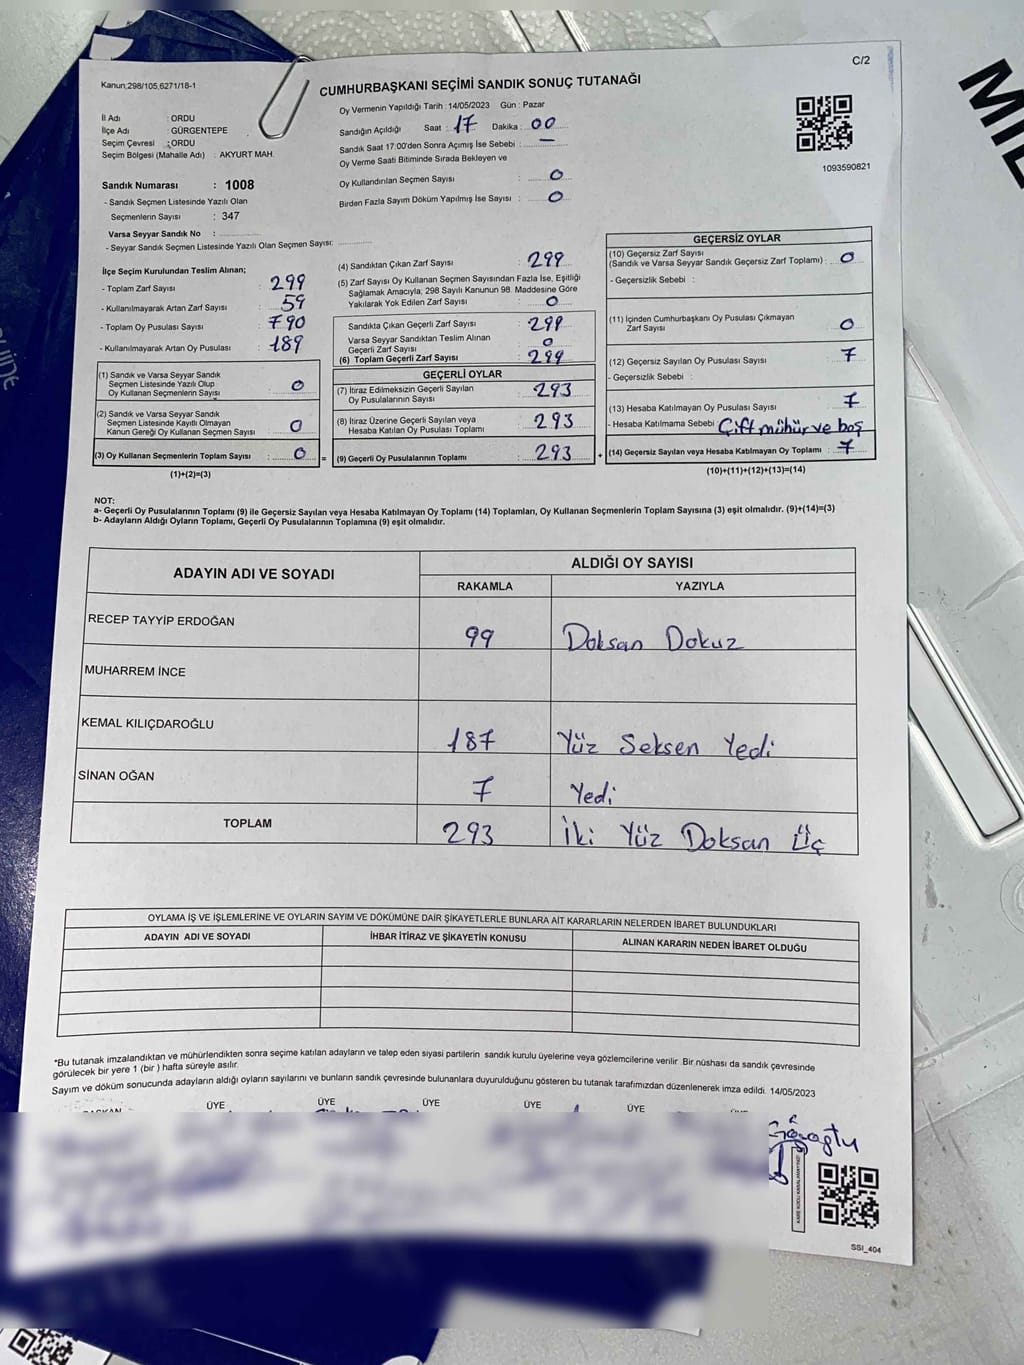 C/2
Kanun;298/105,6271/18-1
CUMHURBAŞKANI SEÇİMİ SANDIK SONUÇ TUTANAĞI
Oy Vermenin Yapıldığı Tarih : 14/05/2023 Gün : Pazar
İl Adı : ORDU
İlçe Adı : GÜRGENTEPE
Seçim Çevresi : ORDU
Seçim Bölgesi (Mahalle Adı) : AKYURT MAH.
Sandığın Açıldığı Saat : 17 Dakika : 00
Sandık Saat 17:00'den Sonra Açımış İse Sebebi : —
Oy Verme Saati Bitiminde Sırada Bekleyen ve
Oy Kullandırılan Seçmen Sayısı : 0
Birden Fazla Sayım Döküm Yapılmış İse Sayısı : 0
1093590821
Sandık Numarası : 1008
- Sandık Seçmen Listesinde Yazılı Olan
Seçmenlerin Sayısı : 347
Varsa Seyyar Sandık No :
- Seyyar Sandık Seçmen Listesinde Yazılı Olan Seçmen Sayısı:
İlçe Seçim Kurulundan Teslim Alınan;
- Toplam Zarf Sayısı : 299
- Kullanılmayarak Artan Zarf Sayısı : 59
- Toplam Oy Pusulası Sayısı : 790
- Kullanılmayarak Artan Oy Pusulası : 189
(1) Sandık ve Varsa Seyyar Sandık
Seçmen Listesinde Yazılı Olup
Oy Kullanan Seçmenlerin Sayısı : 0
(2) Sandık ve Varsa Seyyar Sandık
Seçmen Listesinde Kayıtlı Olmayan
Kanun Gereği Oy Kullanan Seçmen Sayısı : 0
(3) Oy Kullanan Seçmenlerin Toplam Sayısı : 0 =
(1)+(2)=(3)
(4) Sandıktan Çıkan Zarf Sayısı : 299
(5) Zarf Sayısı Oy Kullanan Seçmen Sayısından Fazla İse, Eşitliği
Sağlamak Amacıyla, 298 Sayılı Kanunun 98. Maddesine Göre
Yakılarak Yok Edilen Zarf Sayısı : 0
Sandıkta Çıkan Geçerli Zarf Sayısı : 299
Varsa Seyyar Sandıktan Teslim Alınan
Geçerli Zarf Sayısı : 0
(6) Toplam Geçerli Zarf Sayısı : 299
GEÇERLİ OYLAR
(7) İtiraz Edilmeksizin Geçerli Sayılan
Oy Pusulalarının Sayısı : 293
(8) İtiraz Üzerine Geçerli Sayılan veya
Hesaba Katılan Oy Pusulası Toplamı : 293
(9) Geçerli Oy Pusulalarının Toplamı : 293 +
GEÇERSİZ OYLAR
(10) Geçersiz Zarf Sayısı
(Sandık ve Varsa Seyyar Sandık Geçersiz Zarf Toplamı) : 0
- Geçersizlik Sebebi :
(11) İçinden Cumhurbaşkanı Oy Pusulası Çıkmayan
Zarf Sayısı : 0
(12) Geçersiz Sayılan Oy Pusulası Sayısı : 7
- Geçersizlik Sebebi :
(13) Hesaba Katılmayan Oy Pusulası Sayısı : 7
- Hesaba Katılmama Sebebi : Çift mühür ve boş
(14) Geçersiz Sayılan veya Hesaba Katılmayan Oy Toplamı : 7
(10)+(11)+(12)+(13)=(14)
NOT:
a- Geçerli Oy Pusulalarının Toplamı (9) ile Geçersiz Sayılan veya Hesaba Katılmayan Oy Toplamı (14) Toplamları, Oy Kullanan Seçmenlerin Toplam Sayısına (3) eşit olmalıdır. (9)+(14)=(3)
b- Adayların Aldığı Oyların Toplamı, Geçerli Oy Pusulalarının Toplamına (9) eşit olmalıdır.
ADAYIN ADI VE SOYADI ALDIĞI OY SAYISI
RAKAMLA YAZIYLA
RECEP TAYYİP ERDOĞAN 99 Doksan Dokuz
MUHARREM İNCE
KEMAL KILIÇDAROĞLU 187 Yüz Seksen Yedi
SİNAN OĞAN 7 Yedi
TOPLAM 293 İki Yüz Doksan Üç
OYLAMA İŞ VE İŞLEMLERİNE VE OYLARIN SAYIM VE DÖKÜMÜNE DAİR ŞİKAYETLERLE BUNLARA AİT KARARLARIN NELERDEN İBARET BULUNDUKLARI
ADAYIN ADI VE SOYADI İHBAR İTİRAZ VE ŞİKAYETİN KONUSU ALINAN KARARIN NEDEN İBARET OLDUĞU
*Bu tutanak imzalandıktan ve mühürlendikten sonra seçime katılan adayların ve talep eden siyasi partilerin sandık kurulu üyelerine veya gözlemcilerine verilir. Bir nüshası da sandık çevresinde
görülecek bir yere 1 (bir ) hafta süreyle asılır.
Sayım ve döküm sonucunda adayların aldığı oyların sayılarını ve bunların sandık çevresinde bulunanlara duyurulduğunu gösteren bu tutanak tarafımızdan düzenlenerek imza edildi. 14/05/2023
ÜYE ÜYE ÜYE ÜYE ÜYE
SSI_404